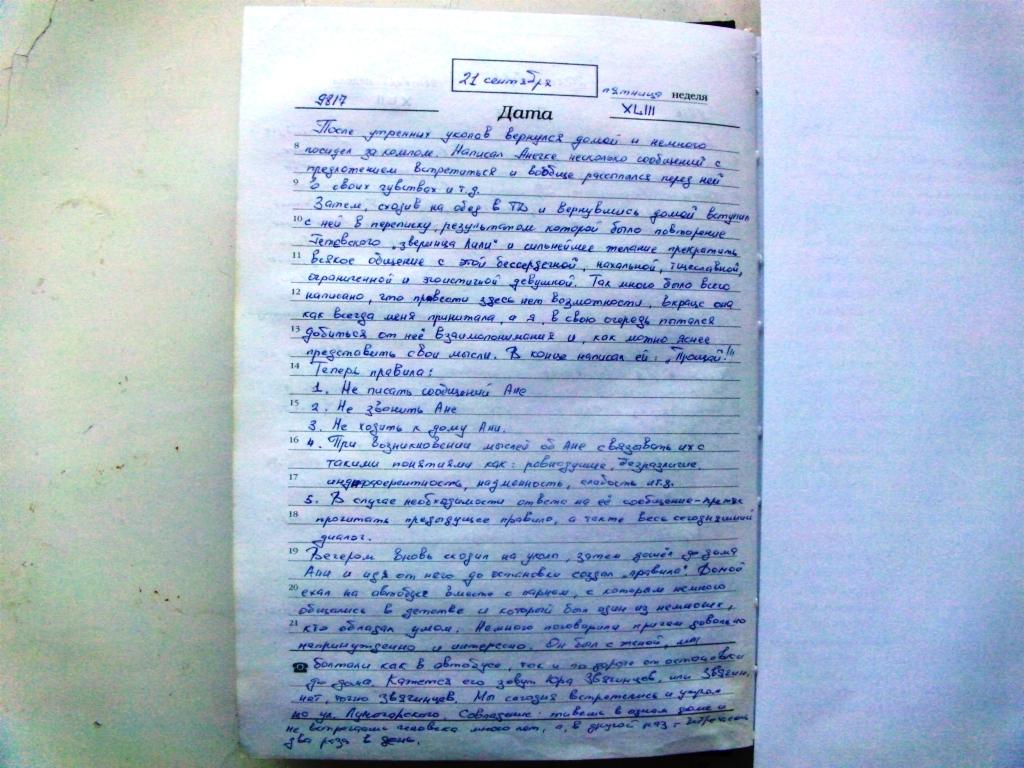 21 сентября
пятница неделя
9817
Дата
XLIII
После утренних уколов вернулся домой и немного
8 посидел за компом. Написал Анечке несколько сообщений с
предложением встретиться и вообще рассыпался перед ней
9 о своих чувствах и т.д.
Затем, сходив на обед в ТД и вернувшись домой вступил
10 с ней в переписку, результатом которой было повторение
"зверинца Лили" и сильнейшее желание прекратить
11 всякое общение с этой бессердечной, нахальной, тщеславной,
ограниченной и эгоистичной девушкой. Так много было всего
12 написано, что привести здесь нет возможности, вкратце она
как всегда меня принижала, а я, в свою очередь пытался
13 добиться от неё взаимопонимания и, как можно яснее
представить свои мысли. В конце написал ей: "Прощай!"
14 Теперь правила:
1. Не писать сообщений Ане
15 2. Не звонить Ане
3. Не ходить к дому Ани.
16 4. При возникновении мыслей об Ане связывать их с
такими понятиями как: равнодушие, безразличие,
17 индифферентность, надменность, слабость и т.д.
5. В случае необходимости ответа на её сообщение-
18 прочитать предыдущее правило, а также весь сегодняшний
диалог.
19 Вечером вновь сходил на укол, затем дошёл до дома
Ани и идя от него до остановки создал "правила". Домой
20 ехал на автобусе вместе с парнем, с которым немного
общались в детстве и который был один из немногих,
21 кто обладал умом. Немного поговорили причём довольно
непринужденно и интересно. Он был с женой, мы
☎ болтали как в автобусе, так и по дороге от остановки
до дома. Кажется его зовут Юра Звягинцев, или Звягин,
нет, точно Звягинцев. Мы сегодня встретились и утром
на ул. Совпадение: живешь в одном доме и
не встречаешь человека много лет, а, в другой раз - встречаешь
два раза в день.